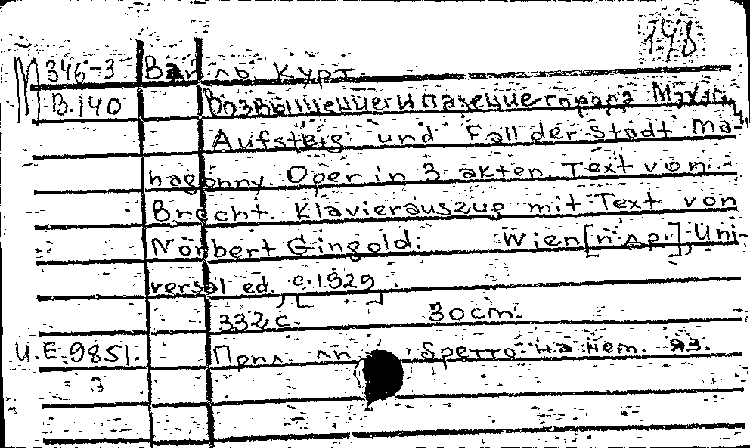 148
М 346-3 Вайль, Курт.
В.140 Возвышение и падение города Махаго
Aufsteig und Fall der Stadt Ma-
hagonny Oper in 3 akten. Text von
Brecht. Klavierauszug mit Text von
Norbert Gingold. Wien [и др.], Uni-
versal ed. c.1929.
332 с. 30 cm.
U.E.9851. Прил. либретто на нем. яз.
3